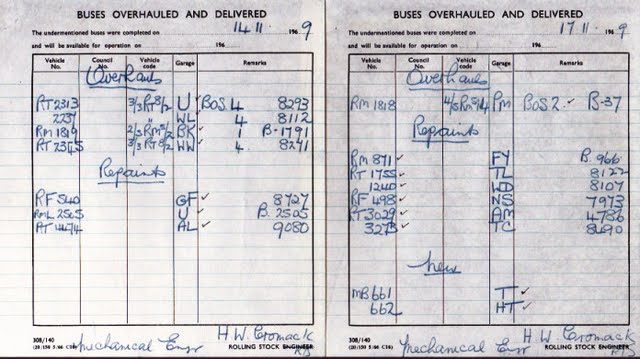 BUSES OVERHAULED AND DELIVERED
The undermentioned buses were completed on 14 11 1969
and will be available for operation on 196
Vehicle No. Council No. Vehicle code Garage Remarks
Overhauls
RT 2313 3/3RT8/2 U ✓ BOS 4 8293
2237 " WL 4 8112
RM 1819 ✓ BK ✓ 1 B-1791
RT 2345 3/3RT8/2 WW 4 8271
Repaints
RF 540 GF ✓ 8727
RML 2565 U ✓ B. 2505
RT 4474 AL ✓ 9080
308/140
Mechanical Engr
H W Cromack
ROLLING STOCK ENGINEER
BUSES OVERHAULED AND DELIVERED
The undermentioned buses were completed on 17 11 1969
and will be available for operation on 196
Vehicle No. Council No. Vehicle code Garage Remarks
Overhauls
RM 1818 ✓ Rm BOS 2 ✓ B-37
Repaints
RM 871 ✓ FY B. 966
RT 1755 ✓ TL 8122
1240 ✓ WD 8107
RF 498 ✓ NS 7973
RT 3029 ✓ AM 4786
3273 ✓ TC 8490
New
MB 661 T ✓
662 HT ✓
308/140
Mechanical Engr
H W Cromack
ROLLING STOCK ENGINEER